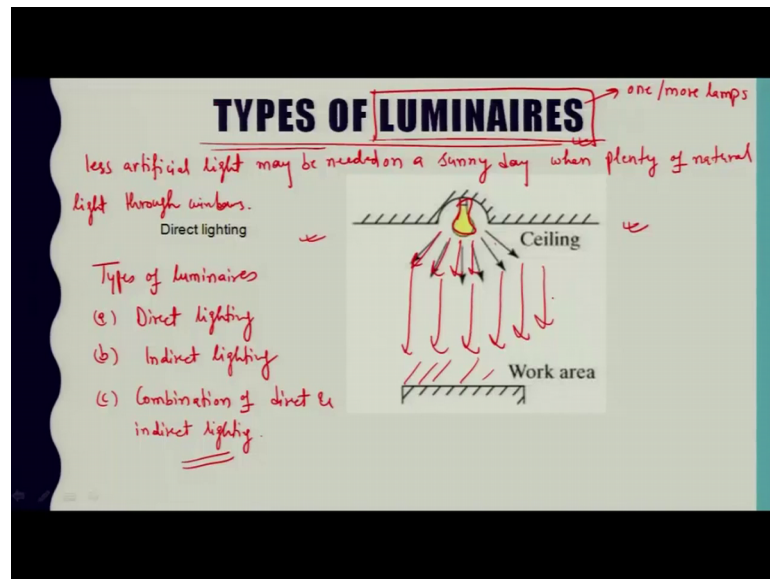 TYPES OF LUMINAIRES
one/more lamps
less artificial light may be needed on a sunny day when plenty of natural
light through windows.
Direct lighting
Ceiling
Types of luminaires
(a) Direct lighting
(b) Indirect lighting
(c) Combination of direct &
indirect lighting.
Work area